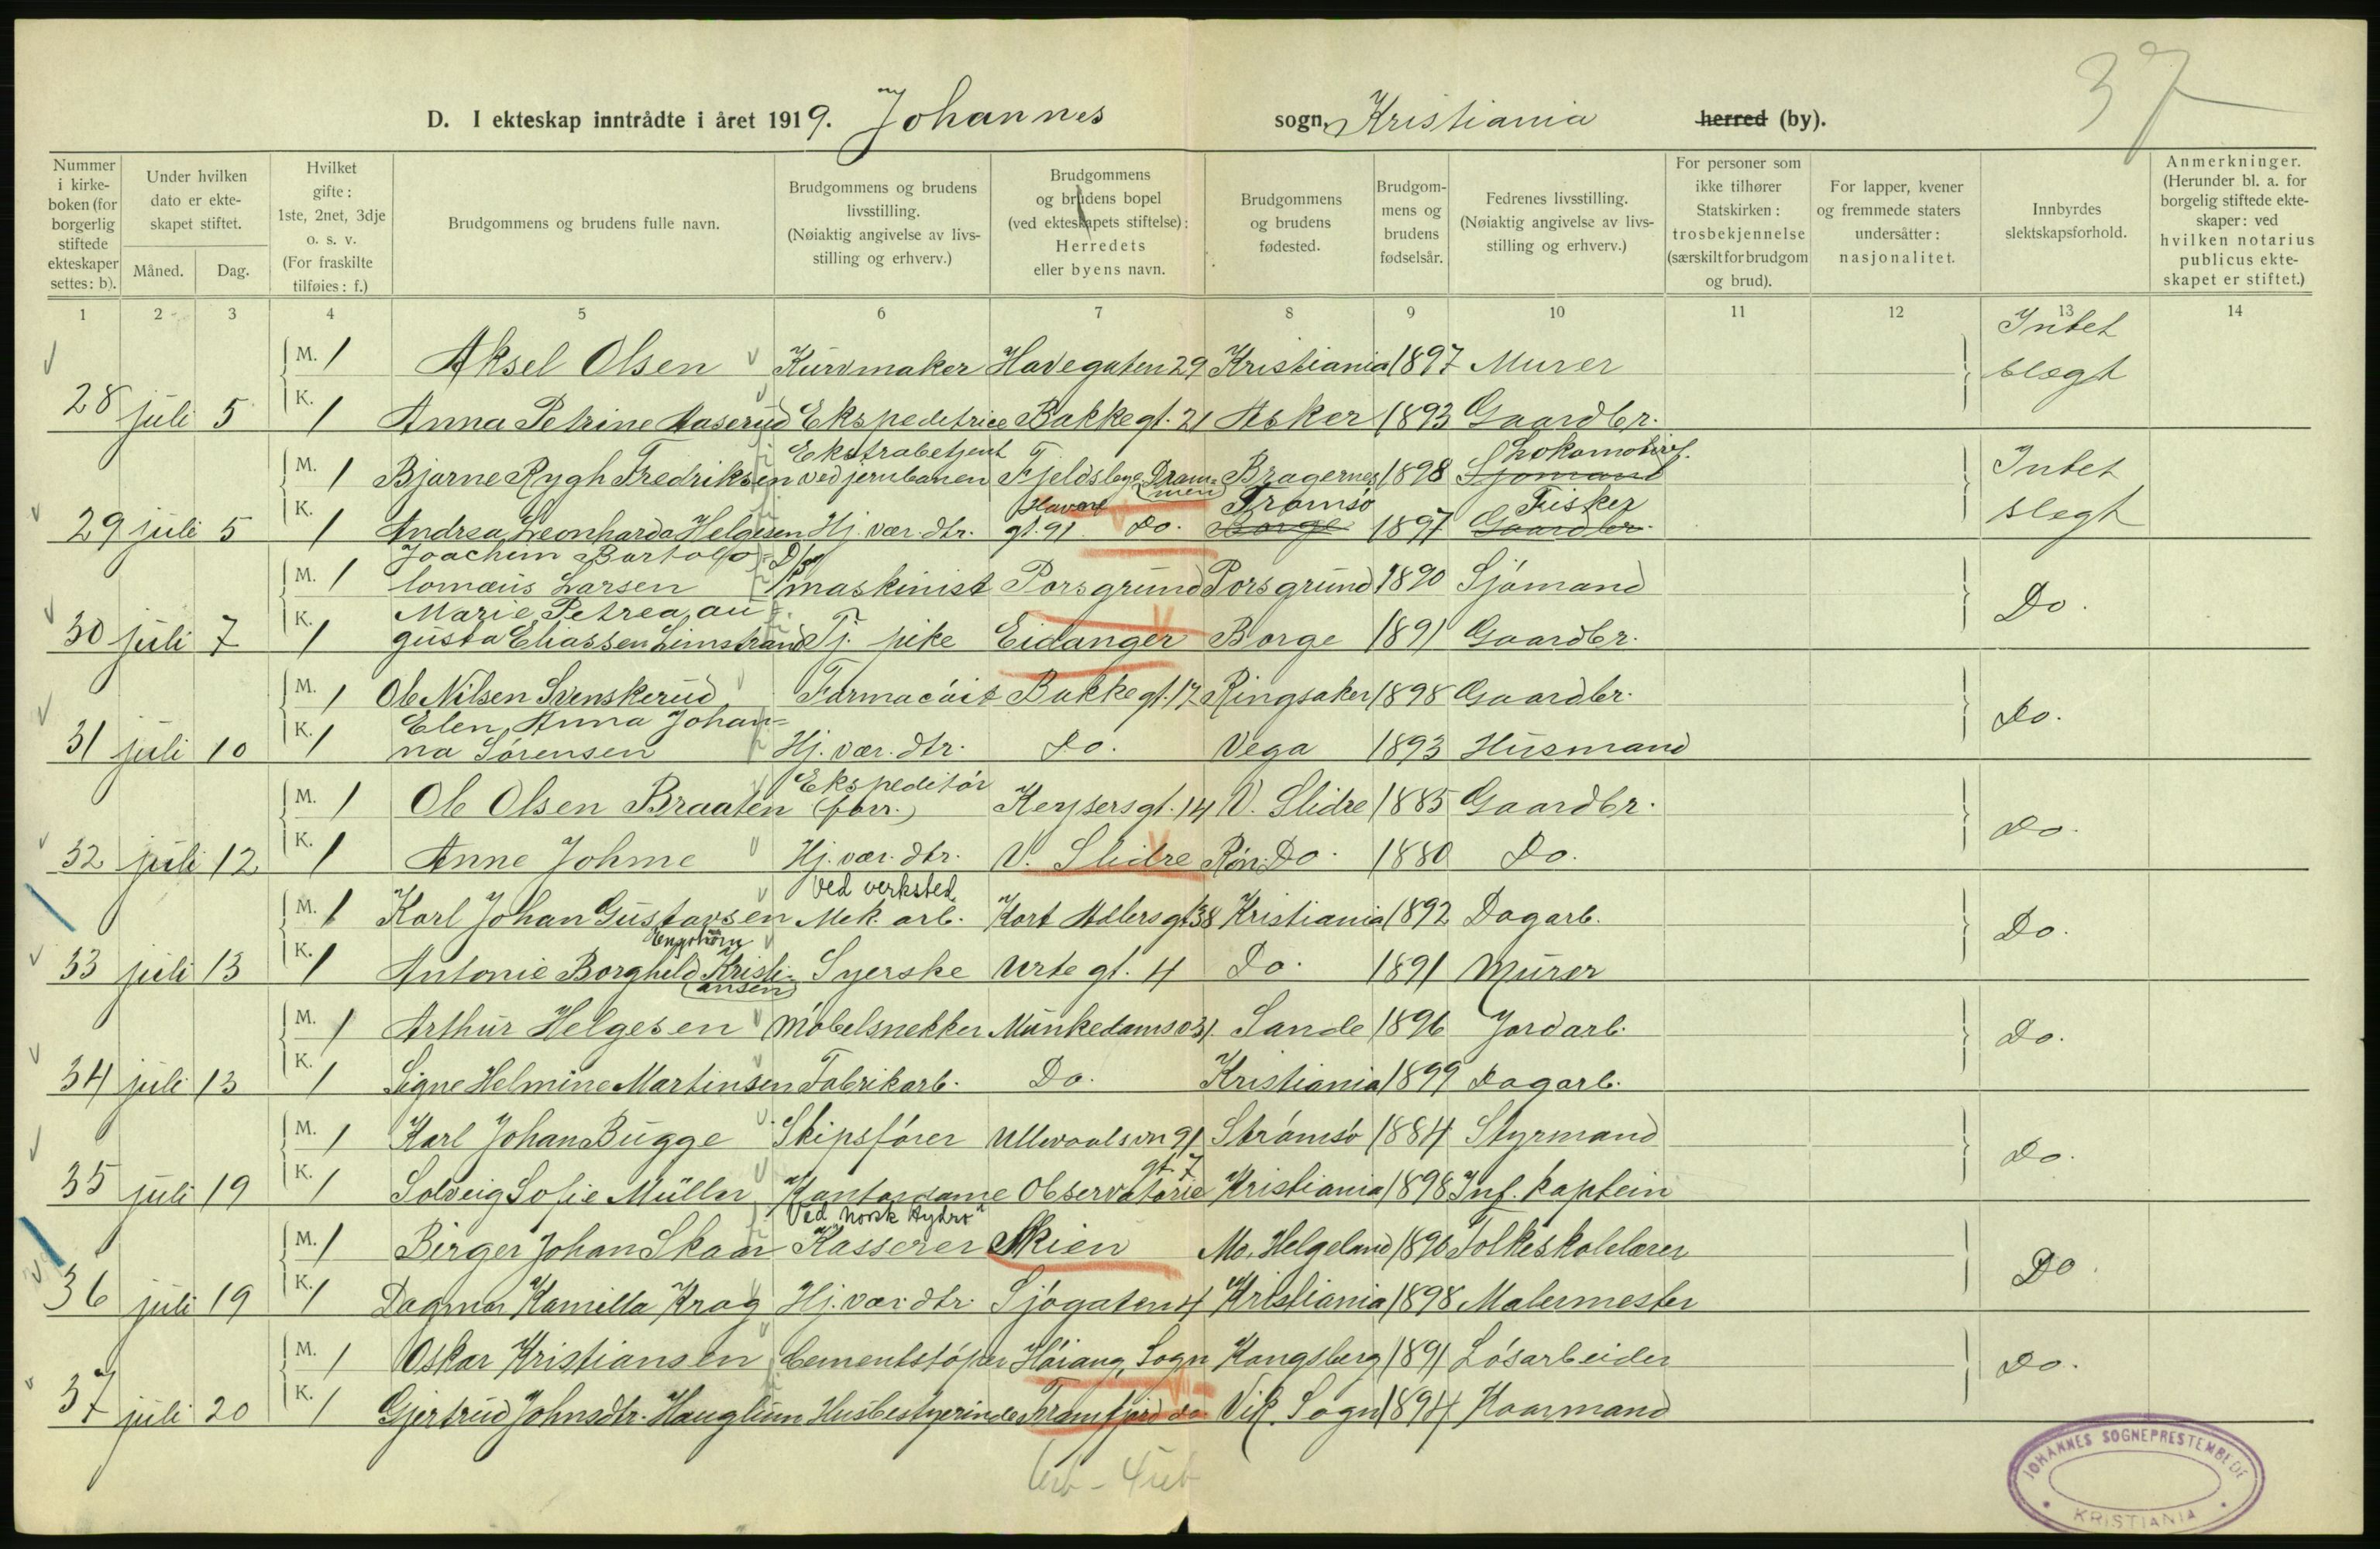 37
D. I ekteskap inntrådte i året 1919. Johannes sogn, Kristiania herred (by).
Nummer i kirke-boken (for borgerlig stiftede ekteskaper settes: b).
Under hvilken dato er ekte-skapet stiftet.
Måned. Dag.
Hvilket gifte: 1ste, 2net, 3dje o. s. v. (For fraskilte tilføies: f.)
Brudgommens og brudens fulle navn.
Brudgommens og brudens livsstilling. (Nøiaktig angivelse av livs-stilling og erhverv.)
Brudgommens og brudens bopel (ved ekteskapets stiftelse): Herredets eller byens navn.
Brudgommens og brudens fødested.
Brudgom-mens og brudens fødselsår.
Fedrenes livsstilling. (Nøiaktig angivelse av livs-stilling og erhverv.)
For personer som ikke tilhører Statskirken: trosbekjennelse (særskilt for brudgom og brud).
For lapper, kvener og fremmede staters undersåtter: nasjonalitet.
Innbyrdes slektskapsforhold.
Anmerkninger. (Herunder bl. a. for borgelig stiftede ekte-skaper: ved hvilken notarius publicus ekte-skapet er stiftet.)
1 2 3 4 5 6 7 8 9 10 11 12 13 14
M. 1 Aksel Olsen Kurvmaker Havegaten 29 Kristiania 1897 Murer Intet slegt
28 juli 5 K. 1 Anna Petrine Aaserud Ekspeditrice Bakkegt. 21 Asker 1893 Gaardbr.
M. 1 Bjarne Rygh Fredriksen Ekstrabetjent ved jernbanen Fjeldsbye Drammen Bragernes 1898 Sjømand Lokomotivf. Intet slegt
29 juli 5 K. 1 Andrea Leonharda Helgesen Hj. vær. dtr. gt. 91 Do. Borge Tromsø 1897 Gaardbr. Fisker
M. 1 Joachim Bartolo=lomæus Larsen D/S maskinist Porsgrund Porsgrund 1890 Sjømand Do.
30 juli 7 K. 1 Marie Petrea au=gusta Eliassen Limstrand Tj. pike Eidanger Borge 1891 Gaardbr.
M. 1 Ole Nilsen Svenskerud Farmacøit Bakkegt. 17 Ringsaker 1898 Gaardbr. Do.
31 juli 10 K. 1 Elen Anna Johan=na Sørensen Hj. vær. dtr. Do. Vega 1893 Husmand
M. 1 Ole Olsen Braaten Ekspeditør (forr.) Keysersgt. 14 V. Slidre 1885 Gaardbr. Do.
32 juli 12 K. 1 Anne Johme Hj. vær. dtr. V. Slidre Røn. Do. 1880 Do.
M. 1 Karl Johan Gustavsen ved verksted Mek. arb. Kort Adlersgt 38 Kristiania 1892 Dagarb. Do.
33 juli 13 K. 1 Antonie Borghild Engstrøm Kristi-(ansen) Syerske Urtegt. 4 Do. 1891 Murer
M. 1 Arthur Helgesen Møbelsnekker Munkedamsv 31. Sande 1896 Jordarb. Do.
34 juli 13 K. 1 Signe Helmine Martinsen Fabrikarb. Do. Kristiania 1899 Dagarb.
M. 1 Karl Johan Bugge Skipsfører Ullevaalsvn 91 Strømsø 1884 Styrmand Do.
35 juli 19 K. 1 Solveig Sofie Müller Kontordame Observatorie gt. 7 Kristiania 1898 Inf. kaptein
M. 1 Birger Johan Skaar Ved "Norsk Hydro" Kasserer Skien Mo. Helgeland 1890 Folkeskolelærer Do.
36 juli 19 K. 1 Dagmar Kamilla Krag Hj. vær. dtr. Sjøgaten 4 Kristiania 1898 Malermester
M. 1 Oskar Kristiansen Cementstøper Høiang, Sogn Kongsberg 1891 Løsarbeider Do.
37 juli 20 K. 1 Gjertrud Johnsdtr. Hauglum Husbestyrerinde Framfjord do. Vik. Sogn 1894 Kaarmand
JOHANNES SOGNEPRESTEMBEDE
KRISTIANIA